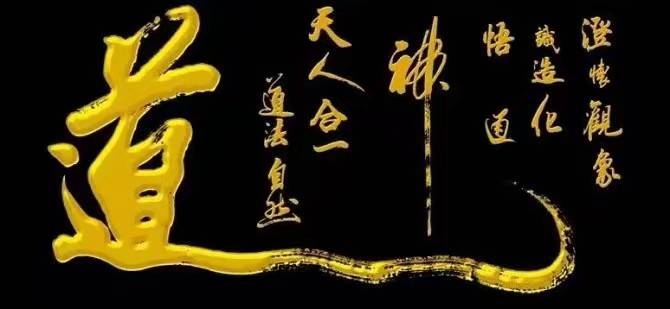 澄懷觀象
識造化
悟
神
天人合一
道法自然
道